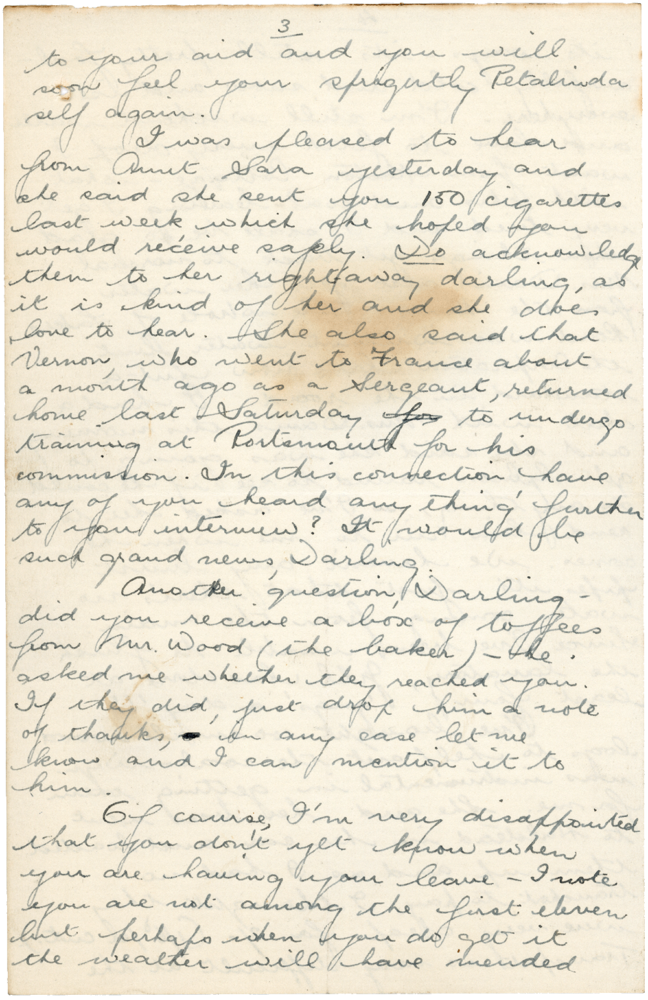 3
to your aid and you will
soon feel your sprigertly Petalinda
self again.
I was pleased to hear
from Aunt Sara yesterday and
she said she sent you 150 cigarettes
last week which she hoped you
would receive safely. Do acknowledg
them to her right away darling, as
it is kind of her and she does
love to hear. She also said that
Vernon, who went to France about
a month ago as a Sergeant, returned
home last Saturday for to undergo
training at Portsmouth for his
commission. In this connection have
any of you heard any thing further
to you interview? It would be
such grand news, Darling.
Another question, Darling -
did you receive a box of toffees
from Mr. Wood (the baker) - he
asked me whether they reached you.
If they did, just drop him a note
of thanks, - in any case let me
know and I can mention it to
him.
Of course, I'm very disappointed
that you don't yet know when
you are having your leave - I note
you are not among the first eleven
but perhaps when you do get it
the weather will have mended